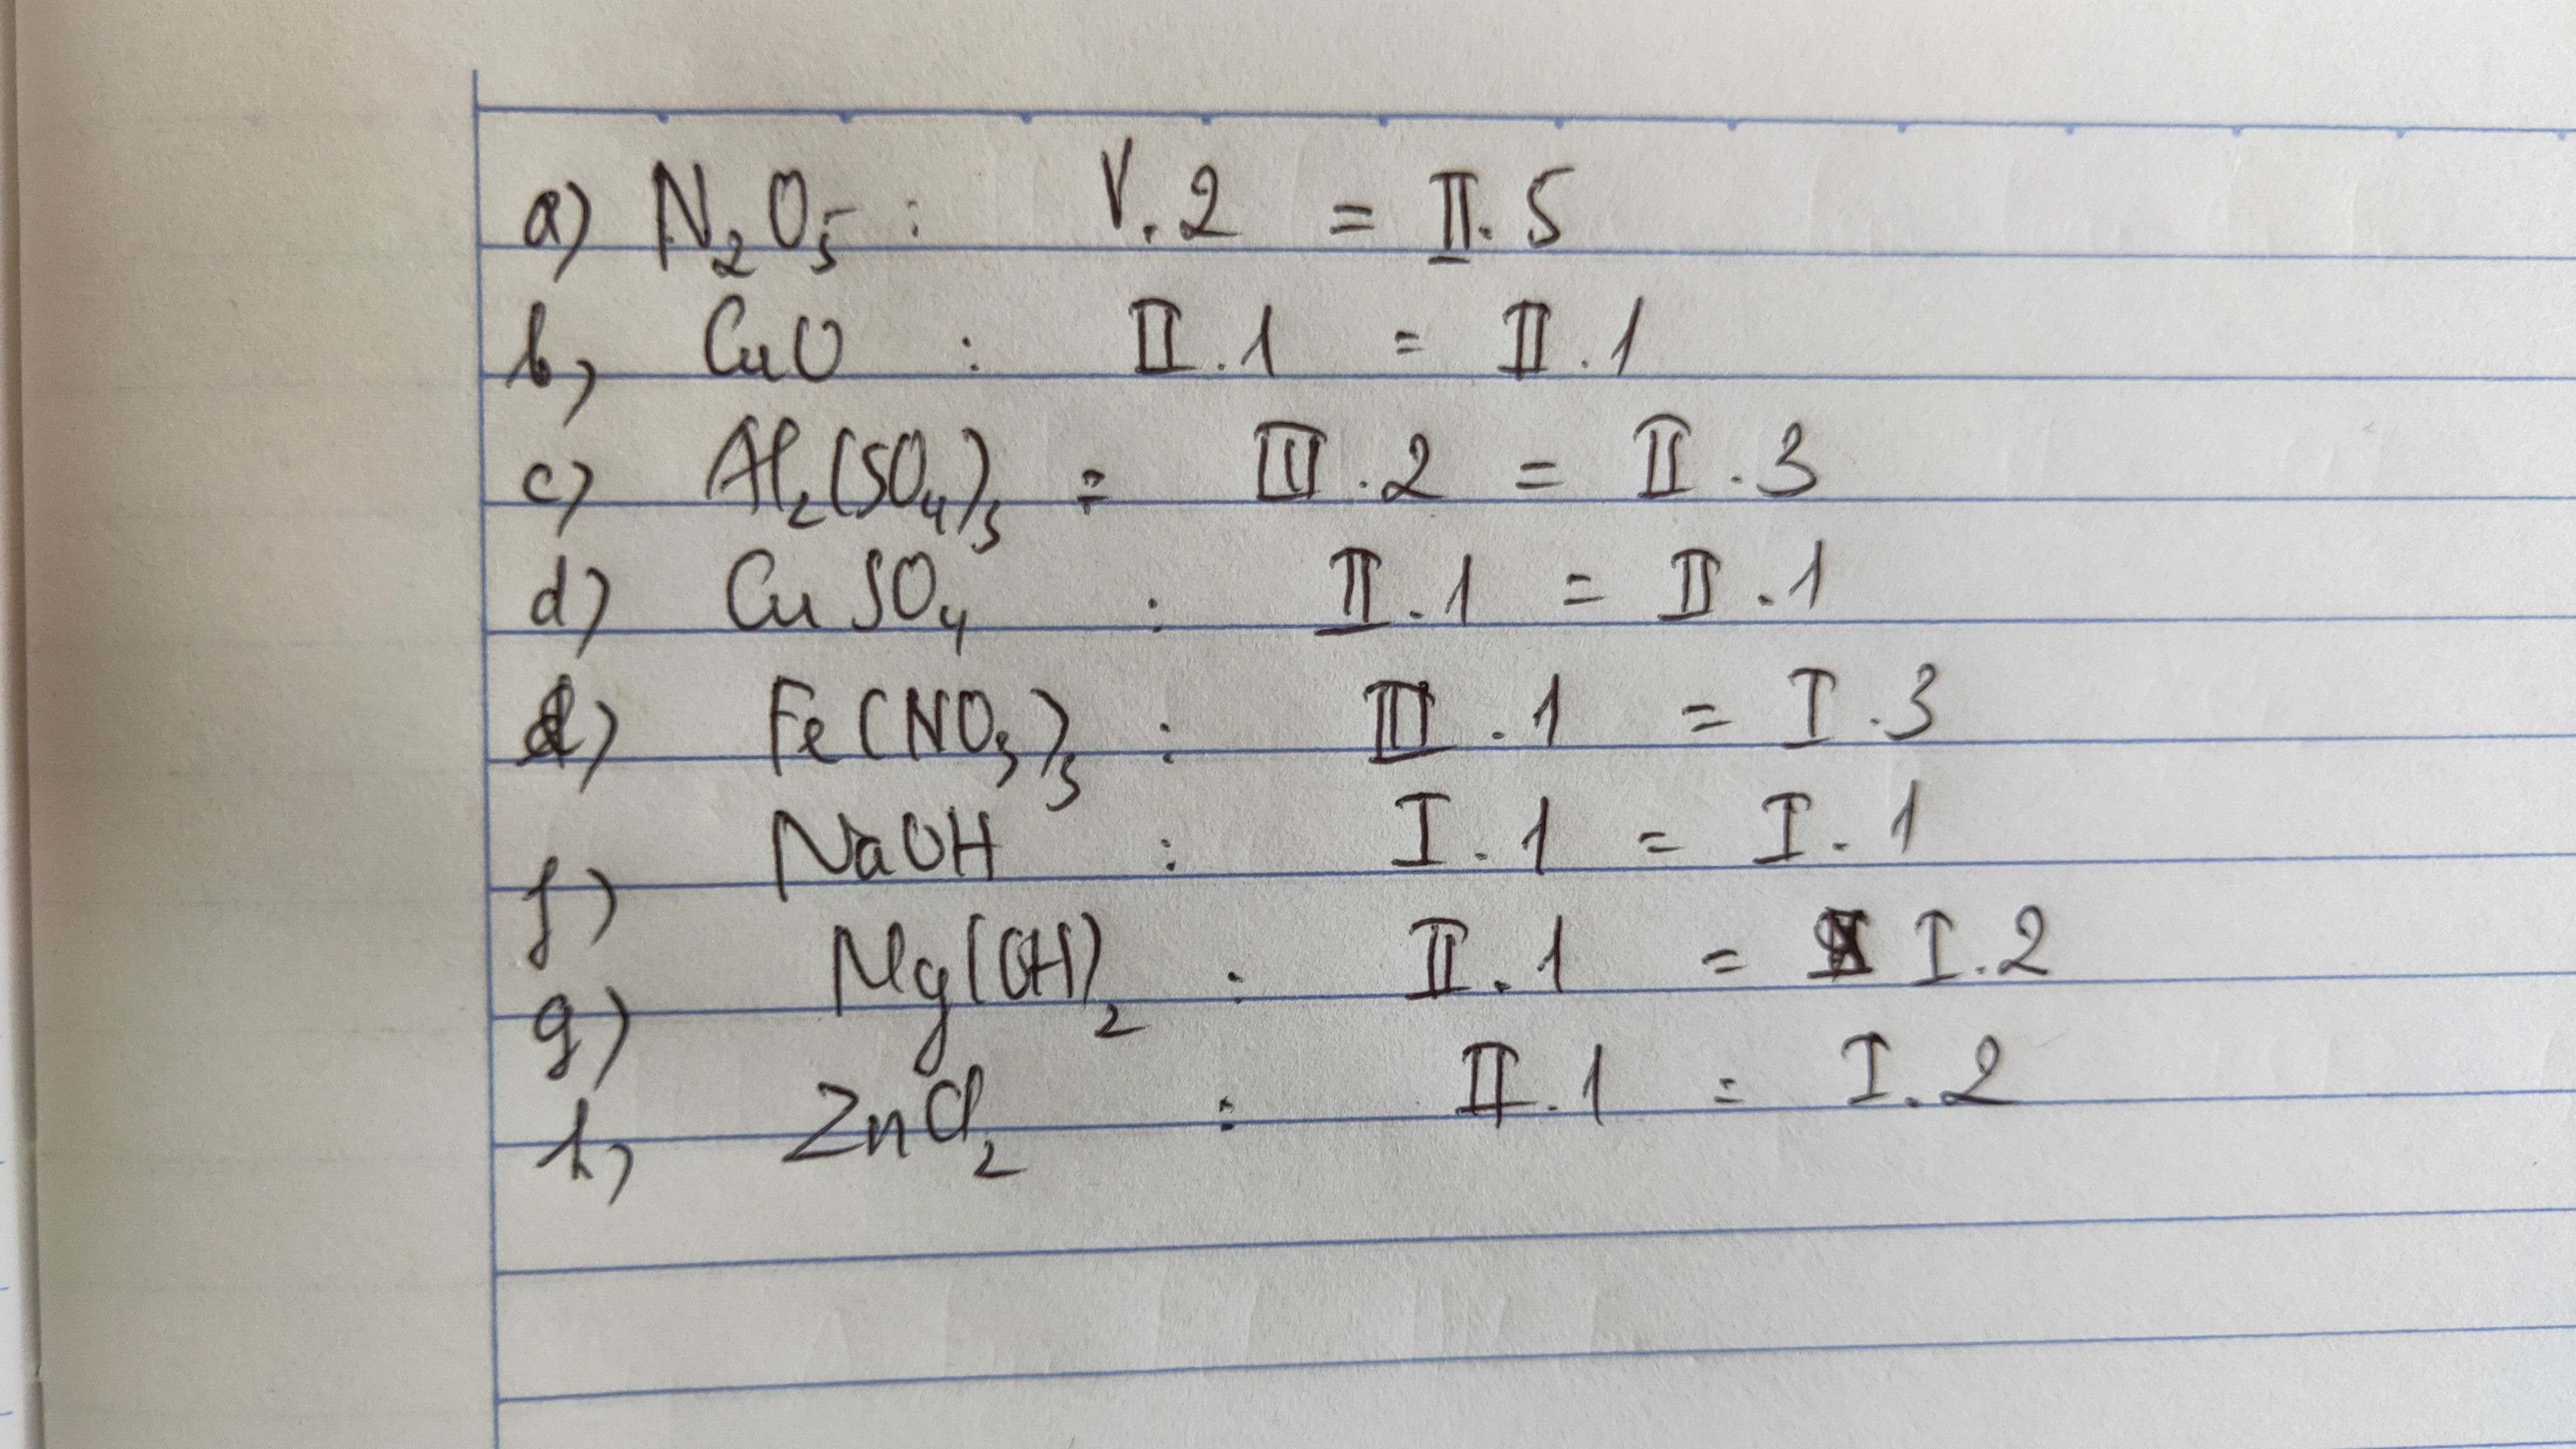 a) N₂O₅ : V.2 = II.5
b, CuO : II.1 = II.1
c) Al₂(SO₄)₃ : III.2 = II.3
d) CuSO₄ : II.1 = II.1
) Fe(NO₃)₃ : III.1 = I.3
f) NaOH : I.1 = I.1
g) Mg(OH)₂ : II.1 = I.2
h, ZnCl₂ : II.1 = I.2